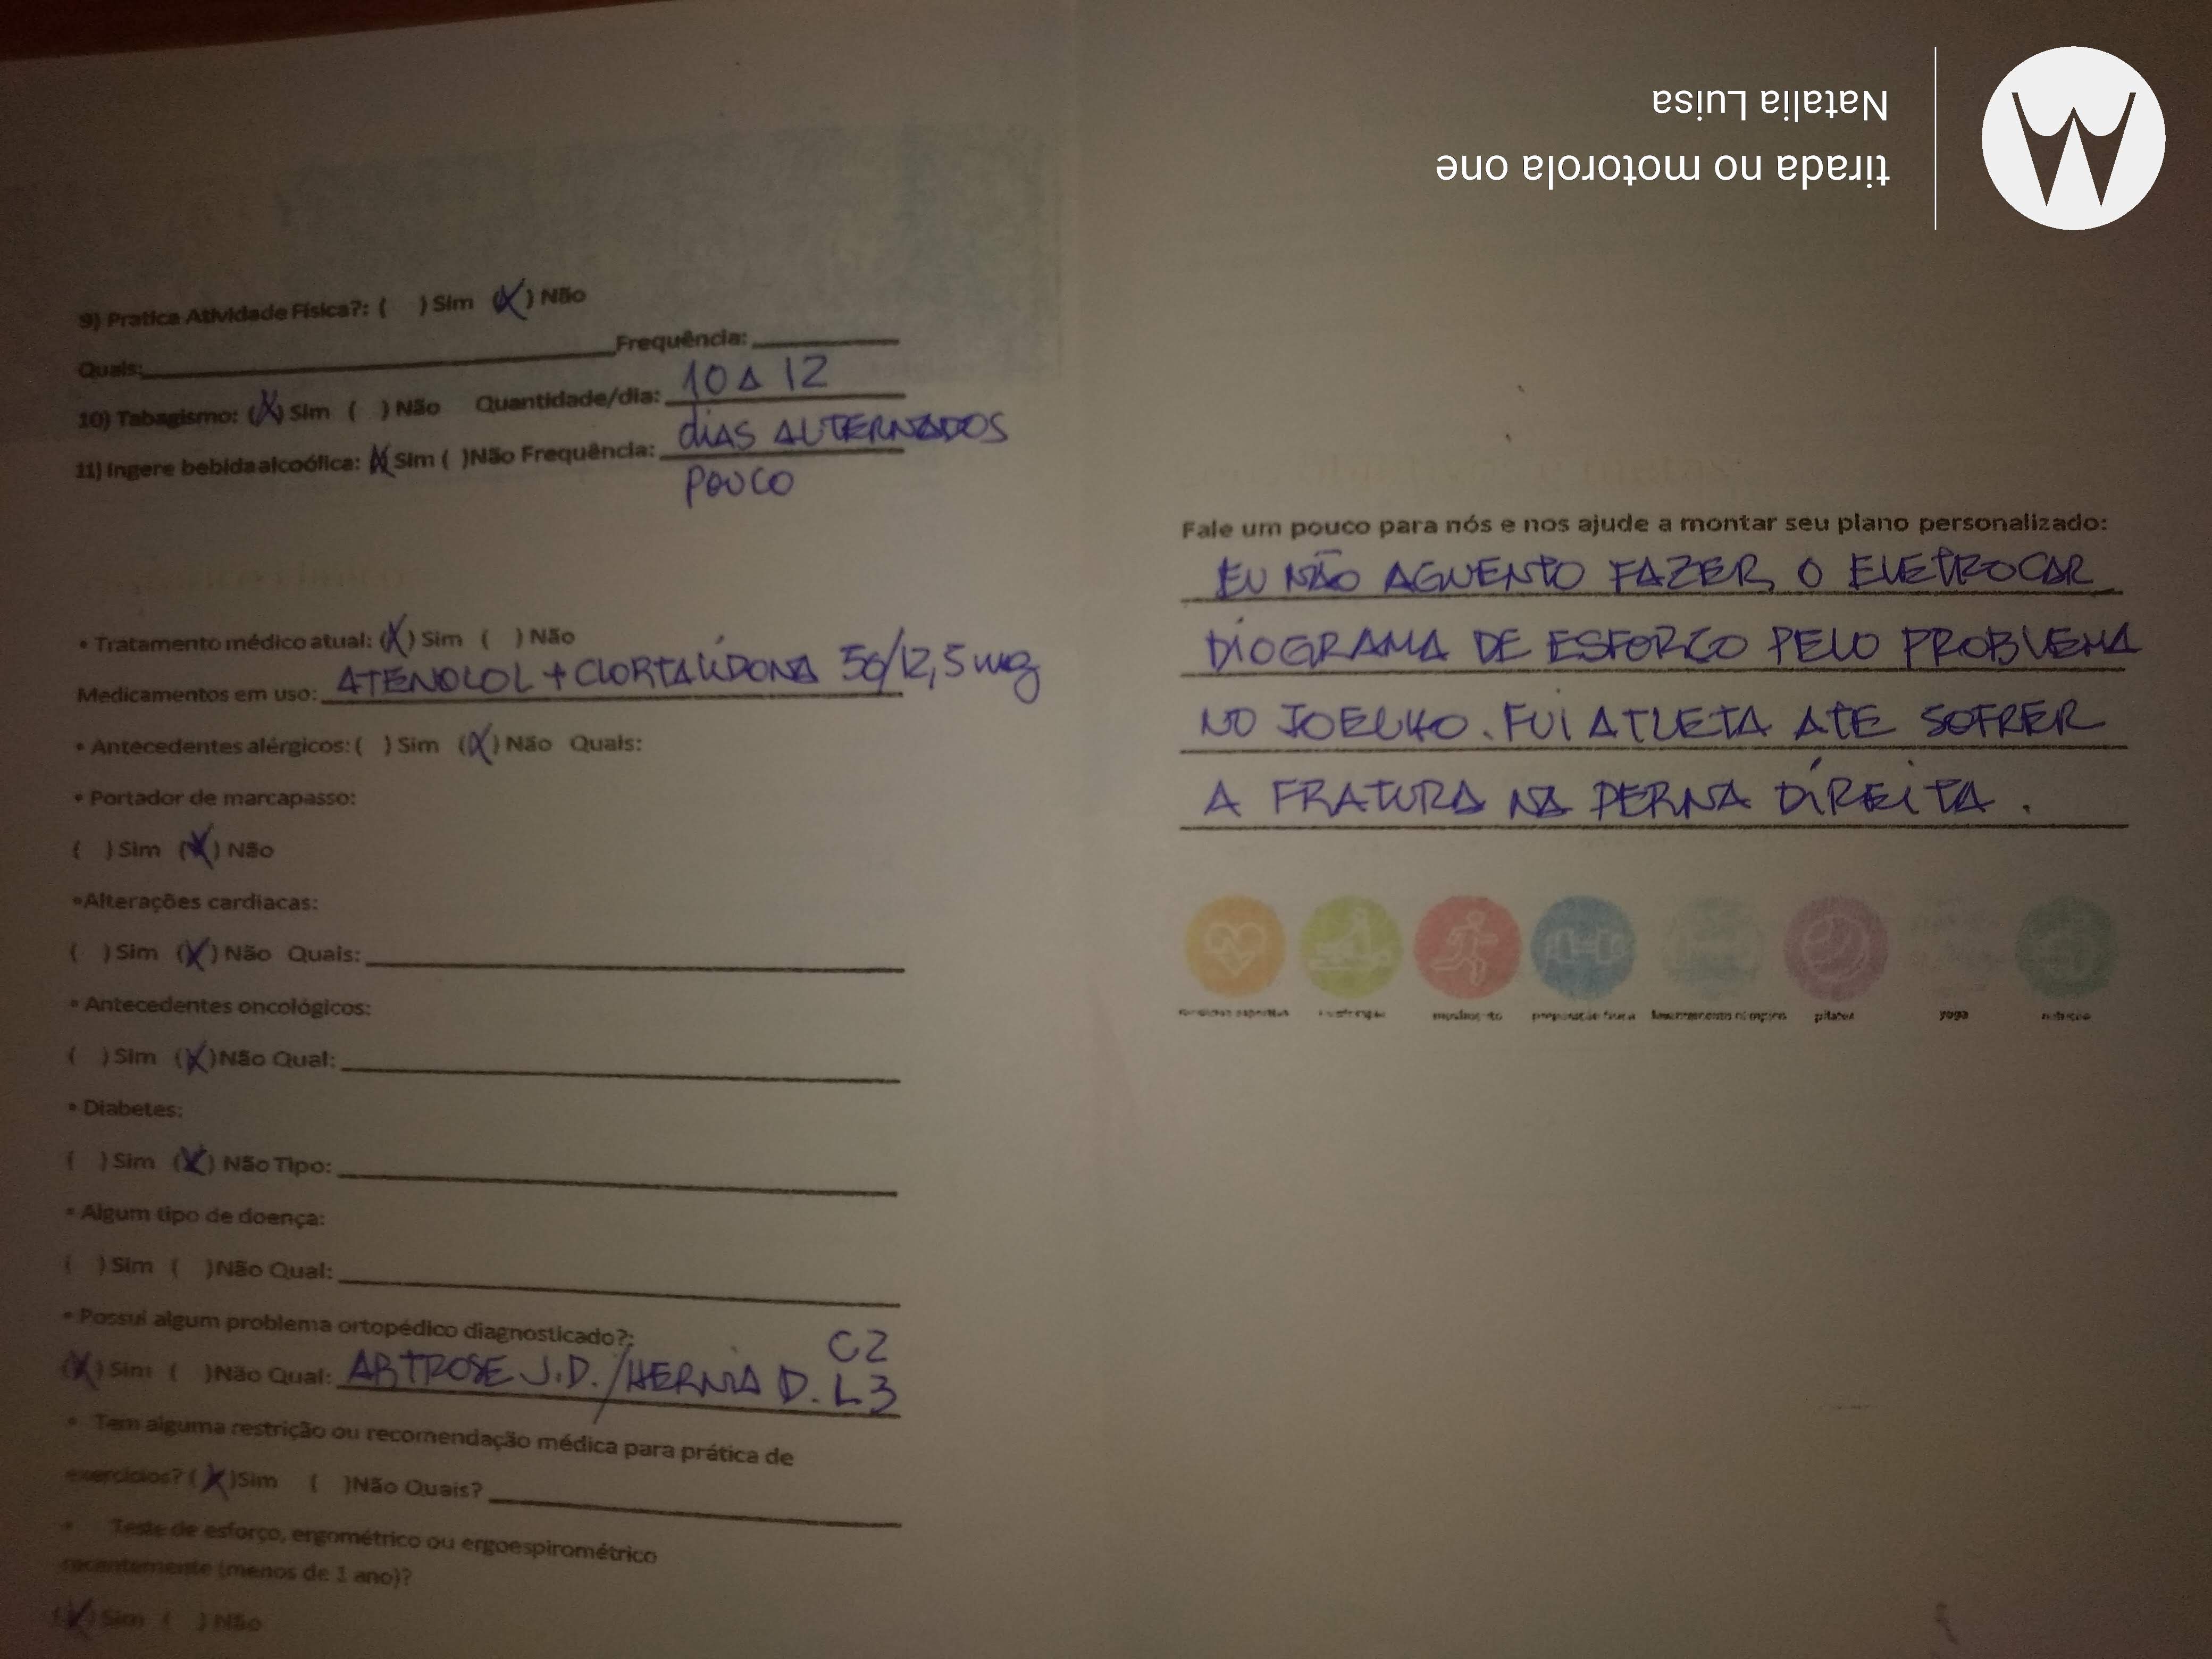 9) Pratica Atividade Física?: ( ) Sim (X) Não
Quais: Frequência:
10 A 12
10) Tabagismo: (X) Sim ( ) Não Quantidade/dia:
DIAS ALTERNADOS
11) Ingere bebida alcoólica: (X) Sim ( ) Não Frequência:
POUCO
• Tratamento médico atual: (X) Sim ( ) Não
Medicamentos em uso: ATENOLOL + CLORTALIDONA 50/12,5 mg
• Antecedentes alérgicos: ( ) Sim (X) Não Quais:
• Portador de marcapasso:
( ) Sim (X) Não
• Alterações cardíacas:
( ) Sim (X) Não Quais:
• Antecedentes oncológicos:
( ) Sim (X) Não Qual:
• Diabetes:
( ) Sim (X) Não Tipo:
• Algum tipo de doença:
( ) Sim ( ) Não Qual:
• Possui algum problema ortopédico diagnosticado?:
C2
(X) Sim ( ) Não Qual: ARTROSE J.D. / HERNIA D. L3
• Tem alguma restrição ou recomendação médica para prática de
exercícios? (X) Sim ( ) Não Quais?
• Teste de esforço, ergométrico ou ergoespirométrico
recentemente (menos de 1 ano)?
(X) Sim ( ) Não
Fale um pouco para nós e nos ajude a montar seu plano personalizado:
EU NÃO AGUENTO FAZER O ELETROCAR
DIOGRAMA DE ESFORÇO PELO PROBLEMA
NO JOELHO. FUI ATLETA ATÉ SOFRER
A FRATURA NA PERNA DIREITA.
preparação física
pilates
yoga
tirada no motorola one
Natalia Luisa